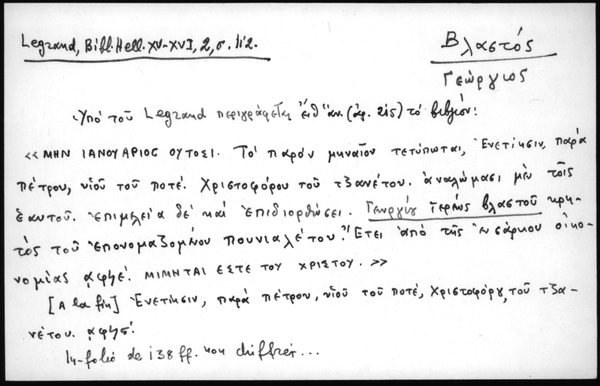 Legrand, Bibl. Hell. XV-XVI, 2, σ. 112.
Βλαστός
Γεώργιος
Ὑπό τοῦ Legrand περιγράφεται (ἀρ. 215) τό βιβλίον:
«ΜΗΝ ΙΑΝΟΥΑΡΙΟΣ ΟΥΤΟΣΙ. Τό παρόν μηναῖον τετύπωται, Ἐνετίησιν, παρά
πέτρου, υἱοῦ τοῦ ποτέ. Χριστοφόρου τοῦ τζανέτου. ἀναλώμασι μέν τοῖς
ἑαυτοῦ. ἐπιμελεία δέ καί ἐπιδιορθώσει. Γεωργίου ἱερέως βλαστοῦ κρη-
τός τοῦ ἐπονομαζομένου πουνιαλέτου. Ἔτει ἀπό τῆς ἐνσάρκου οἰκο-
νομίας ͵αφπέ. ΜΙΜΗΤΑΙ ΕΣΤΕ ΤΟΥ ΧΡΙΣΤΟΥ.»
[A la fin] Ἐνετίησιν, παρά πέτρου, υἱοῦ τοῦ ποτέ, Χριστοφόρου, τοῦ τζα-
νέτου.
In-folio de 138 ff. non chiffrés...